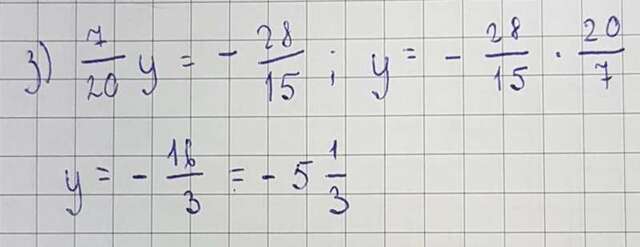 3) 7/20 y = - 28/15 ; y = - 28/15 · 20/7
y = - 16/3 = - 5 1/3